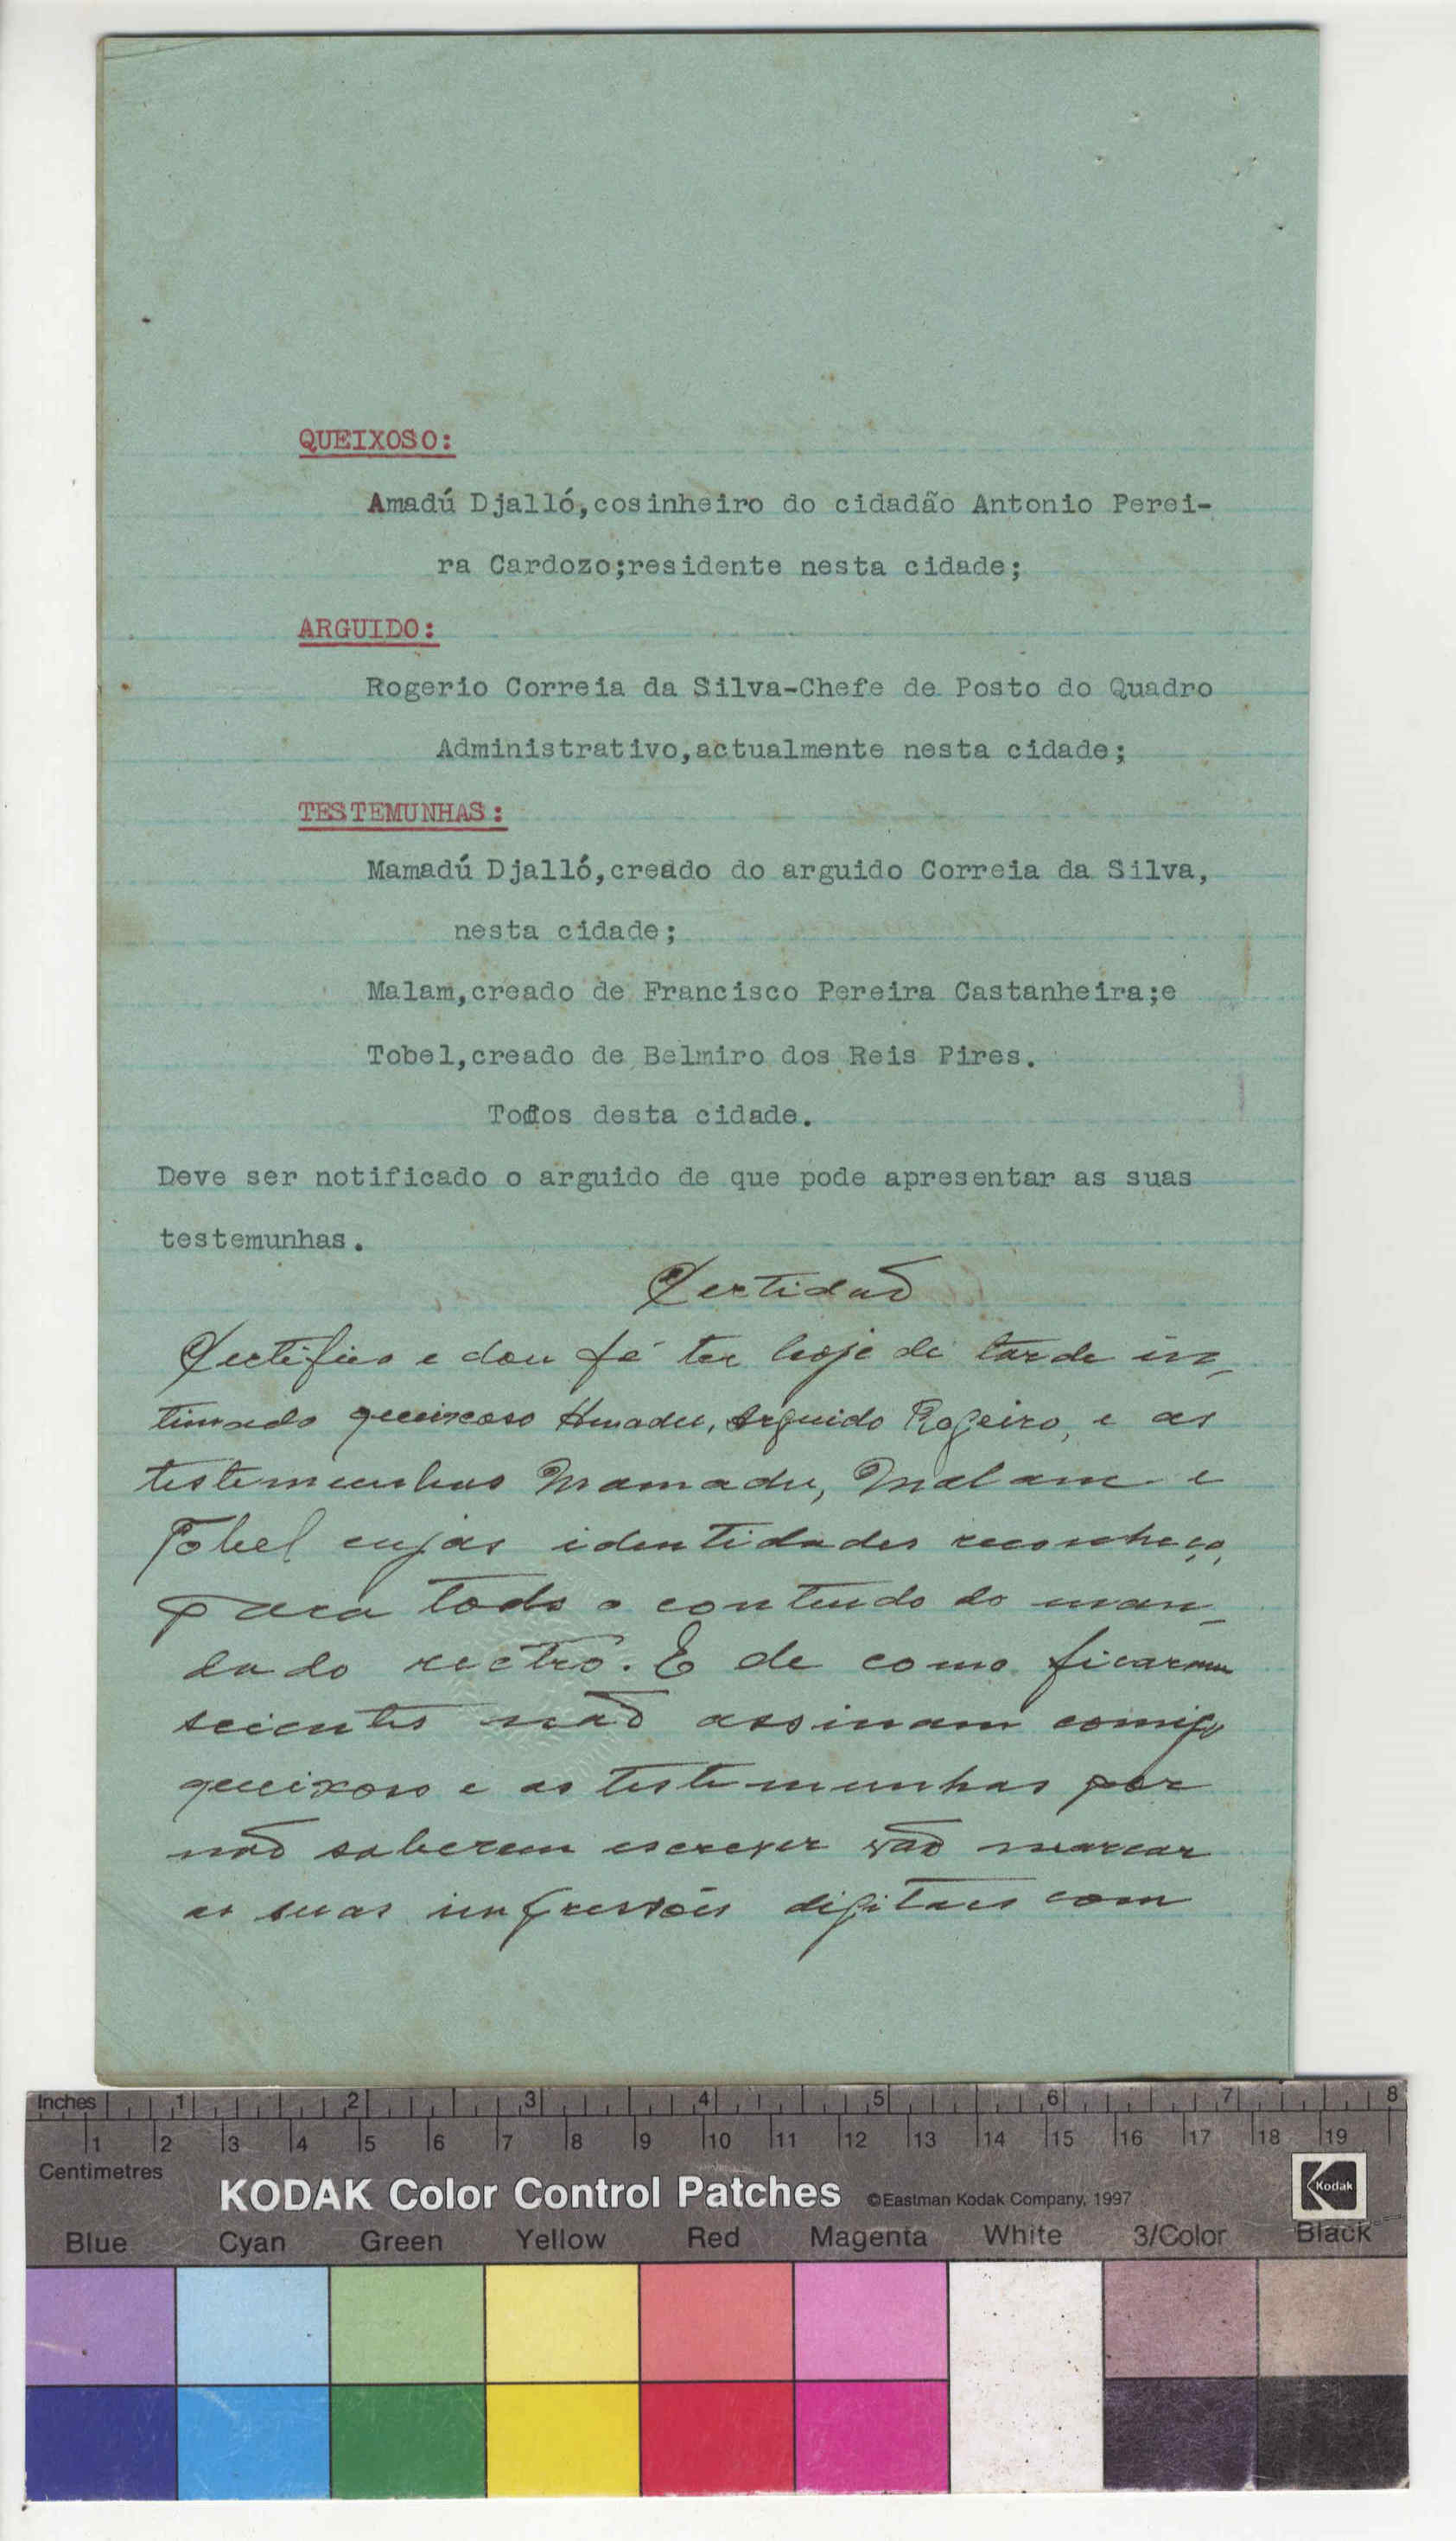 QUEIXOSO:
Amadú Djalló,cosinheiro do cidadão Antonio Perei-
ra Cardozo;residente nesta cidade;
ARGUIDO:
Rogerio Correia da Silva-Chefe de Posto do Quadro
Administrativo,actualmente nesta cidade;
TESTEMUNHAS:
Mamadú Djalló,creado do arguido Correia da Silva,
nesta cidade;
Malam,creado de Francisco Pereira Castanheira;e
Tobel,creado de Belmiro dos Reis Pires.
Todos desta cidade.
Deve ser notificado o arguido de que pode apresentar as suas
testemunhas.
Certidão
Certifico e dou fé ter hoje de tarde in-
timado queixoso Amadu, Arguido Rogeiro, e as
testemunhas Mamadu, Malam e
Tobel cujas identidades reconheço,
para todo o conteudo do man-
dado rectró. E de como ficaram
scientes não assinam comigo
queixoso e as testemunhas por
não saberem escrever vão marcar
as suas impressões digitaes com
Inches 1 2 3 4 5 6 7 8
1 2 3 4 5 6 7 8 9 10 11 12 13 14 15 16 17 18 19
Centimetres
KODAK Color Control Patches ©Eastman Kodak Company, 1997 Kodak
Blue Cyan Green Yellow Red Magenta White 3/Color Black